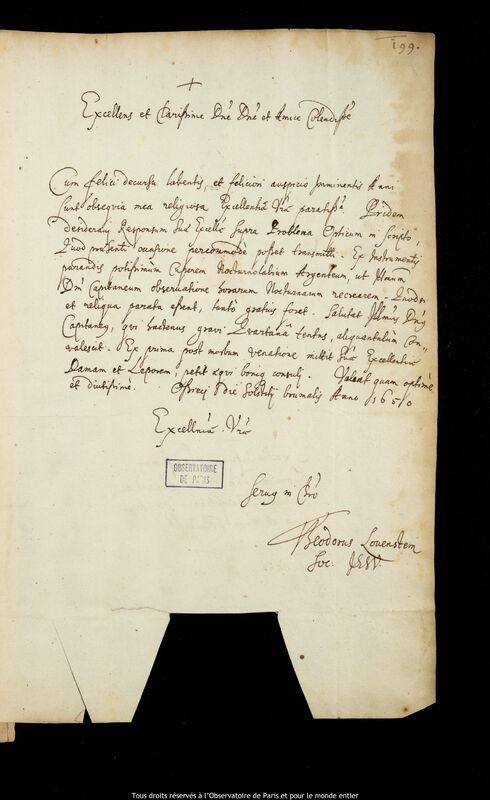 199.
+
Excellens et Clarissime Dne Dne et Amice Colendisse
Cum felici decursu labentis, et feliciori auspicio imminentis Anni
sunt obsequia mea religiosa Excellentiæ Vræ paratissa. Pridem
desideravi Responsum suæ Excellæ supra Problema Opticum in scripto
Quod præsenti occasione percommode posset transmitti. Ex Instrumentis
parandis potissimum caperem Nocturnolabium Argenteum, ut Illmum
Dm Capitaneum observatione horarum Nocturnarum recrearem. Quod si
et reliqua parata essent, tanto gratius foret. Salutat Illmus Dns
Capitaneus, qui hactenus gravi Quartanâ tentus, aliquantulum Con-
valescit. Ex prima post morbum venatione mittit suæ Excellentiæ
Damam et Leporem petit æqui bonique consuli. Valeat quam optimè
et diutissimè. Die Solstitij brumalis Anno 1650
Excellniæ Vræ
OBSERVATOIRE
DE PARIS
servus in Chro
Theodorus Lovenstem
Soc. JESV.
Tous droits réservés à l'Observatoire de Paris et pour le monde entier